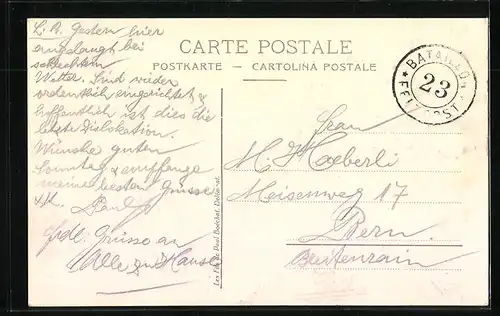 L. B. Gestern hier
angelangt bei
schlechtem
Wetter. Sind wieder
ordentlich eingerichtet &
hoffentlich ist dies die
letzte Dislokation.
Wünsche guten
Sonntag & empfange
meine besten Grüsse
Paul
Grüsse an
Alle zu Hause
CARTE POSTALE
POSTKARTE - CARTOLINA POSTALE
BATAILLON
23
FELDPOST
Frau
M. Haeberli
Meisenweg 17
Bern.
Breitenrain
Les Fils de Paul Boéchat, Delémont.